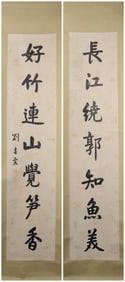 長江繞郭知魚美
好竹連山覺筍香
劉春霖